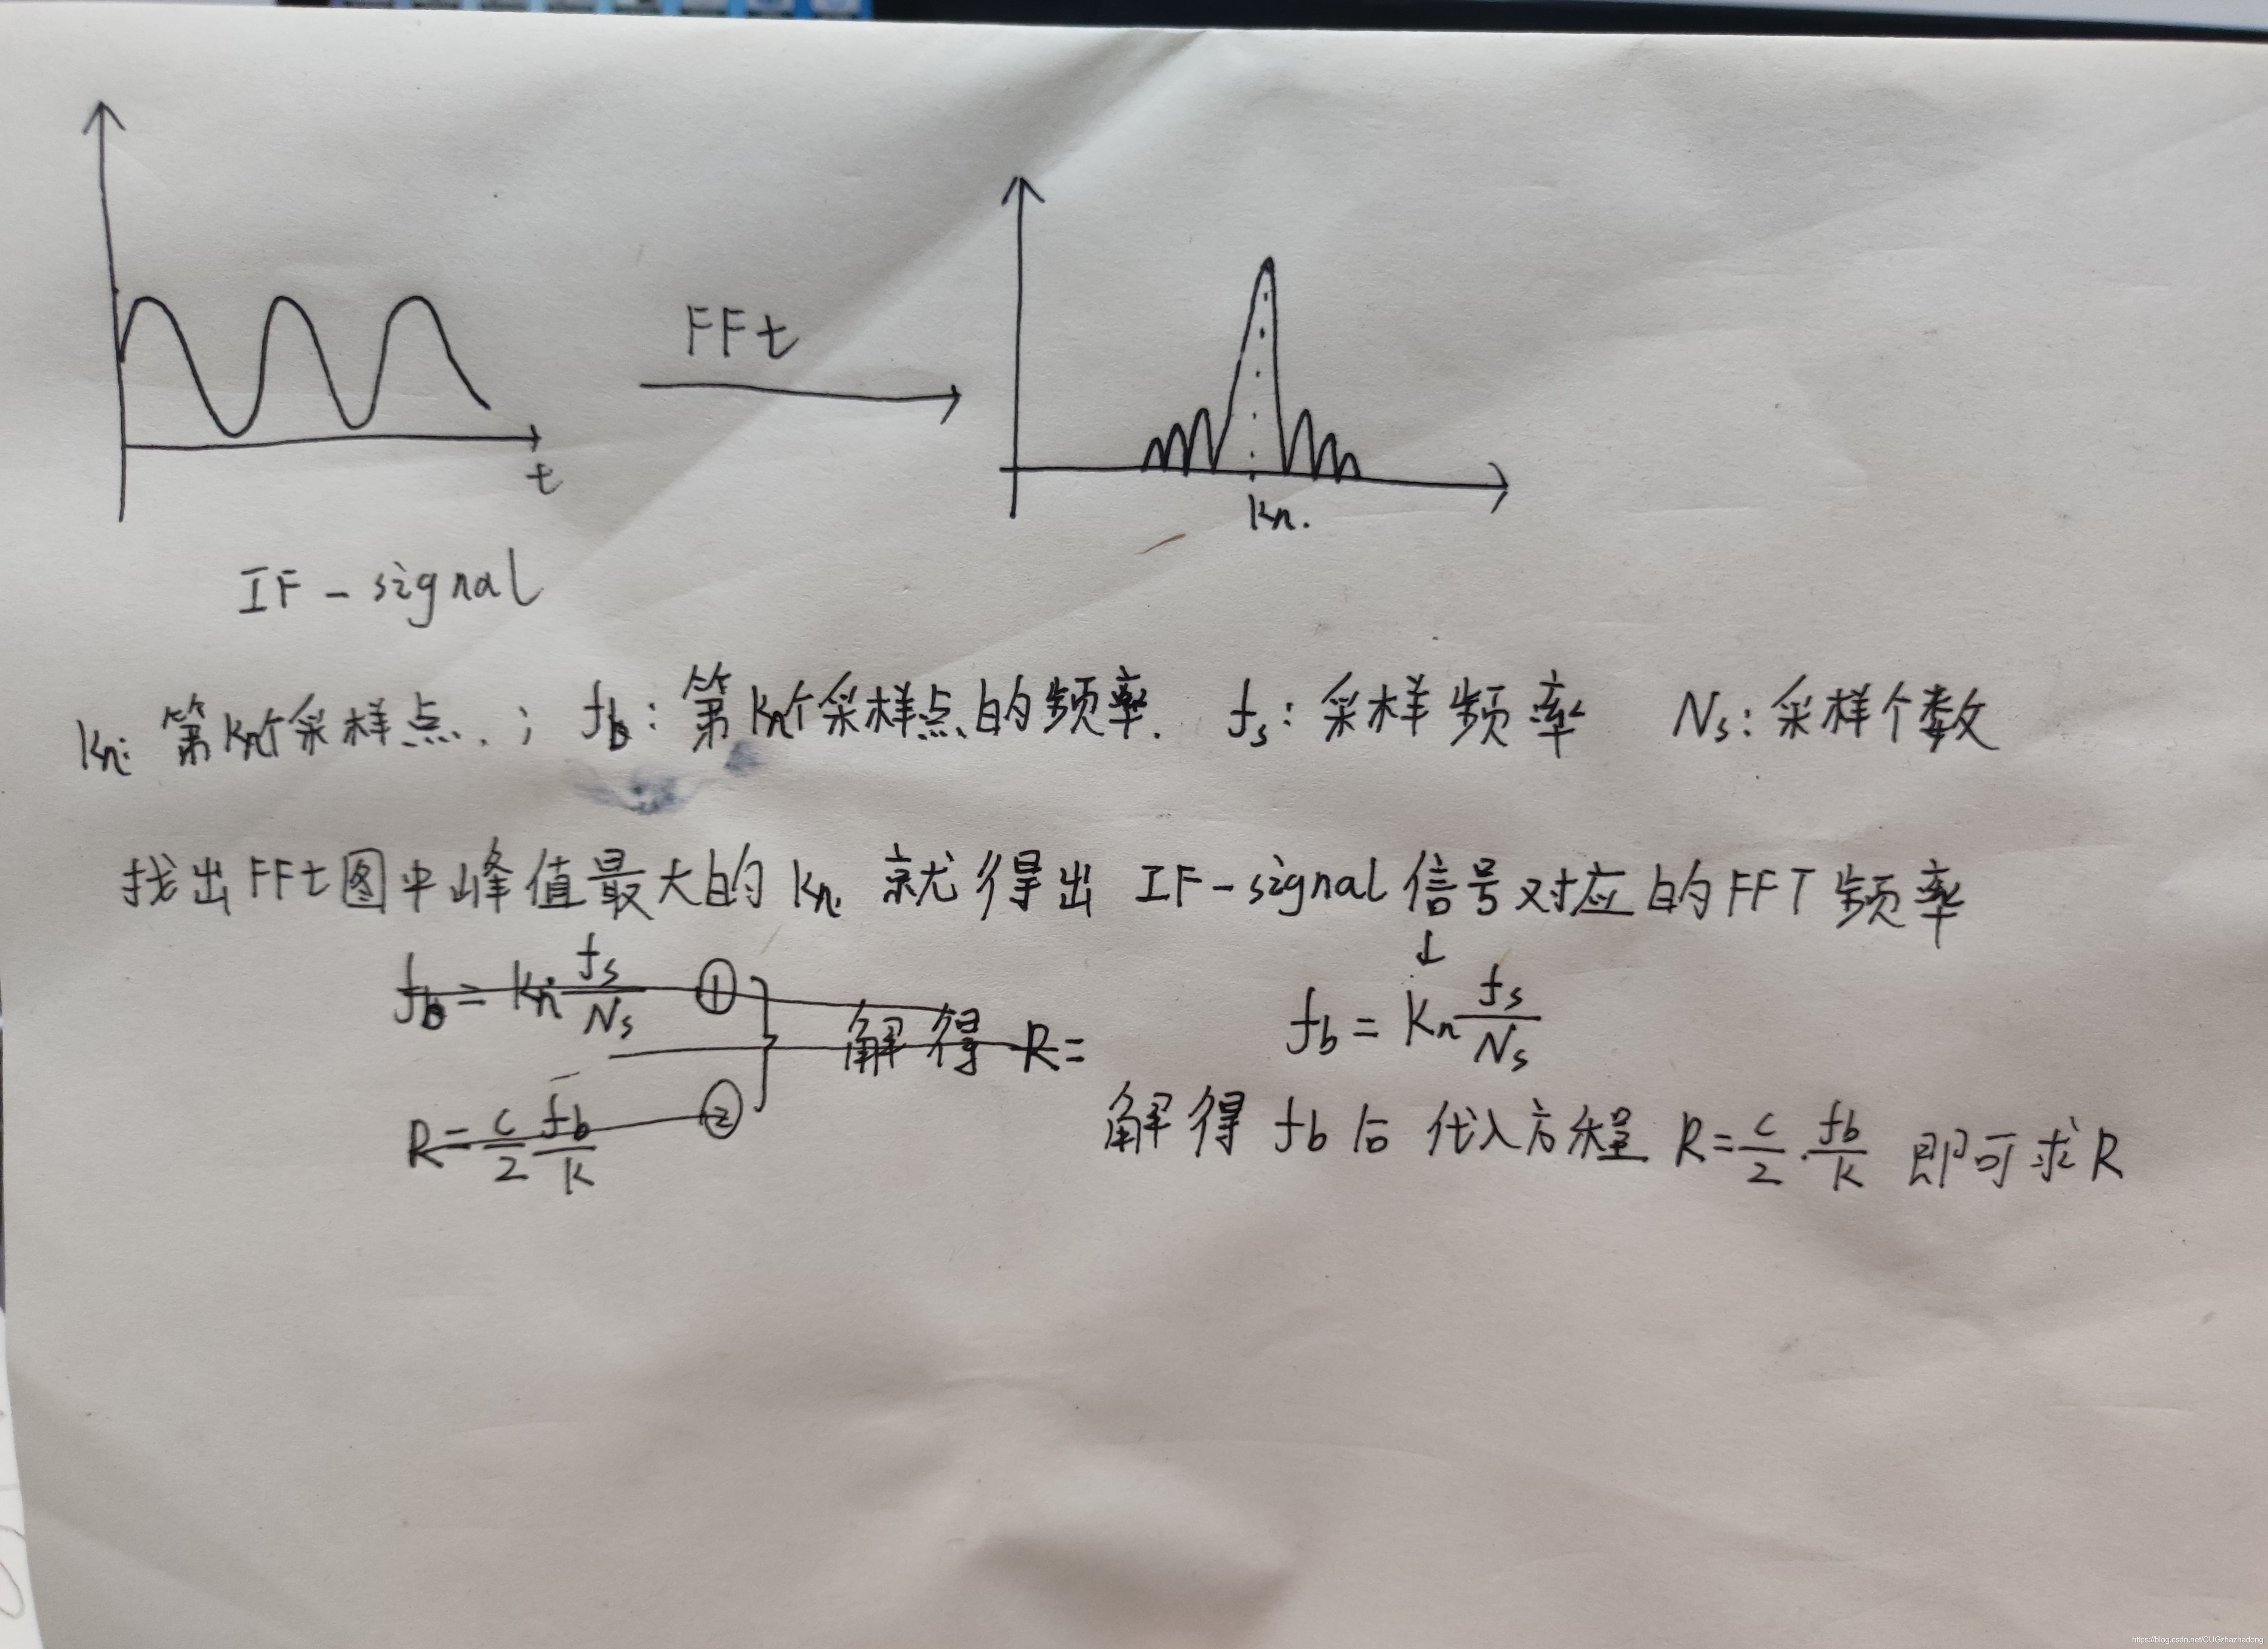 FFt
t
kn.
IF-signal
kn: 第kn个采样点.; fb: 第kn个采样点的频率. fs: 采样频率 Ns: 采样个数
找出FFt图中峰值最大的kn 就得出 IF-signal信号对应的FFT频率
↓
fb = kn fs/Ns ①
解得 R=
fb = kn fs/Ns
R = c/2 fb/k ②
解得 fb后 代入方程 R = c/2 · fb/k 即可求R
https://blog.csdn.net/CUGzhazhadong